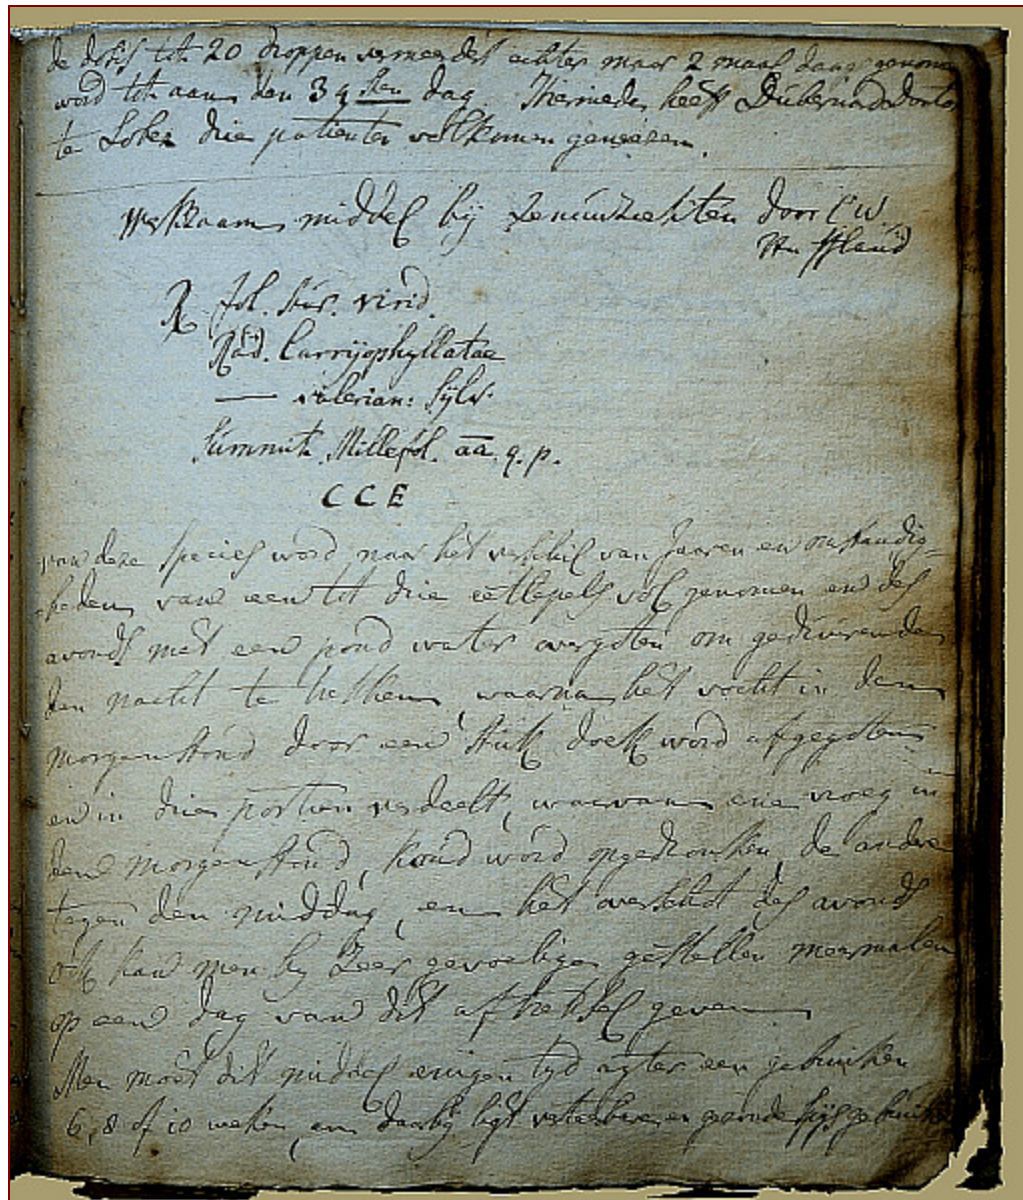 de dosis tot 20 droppen vermeerdert echter maar 2 maal daags genomen
word tot aan den 39 sten dag. Hiermede heeft Dubernad doctor
te drie patienten volkomen genezen.
Werkzaam middel bij Zenuwziekten door C W.
Huffland
R. Fol. Aur. virid.
Rad. Carrijophyllatae
— valerian: Sylv.
Summit. Millefol. aa. q. p.
C C E
van deze species word naar het verschil van Jaaren en omstandig-
heden van een tot drie eetlepels vol genomen en des
avonds met een pond water overgoten om gedurende
den nacht te trekken, waarna het vocht in den
morgenstond door een stuk doek word afgegoten
en in drie portien verdeelt, waarvan eene vroeg in
den morgenstond, koud word opgedronken, de andere
tegen den middag, en het overschot des avonds
ook kan men bij Zeer gevoelige gestellen meermalen
op een dag van dit aftreksel geven
Men moet dit middel eenigen tyd agter een gebruiken
6, 8 of 10 weken, en daarbij ligt verteerbare en gezonde spijs gebruiken